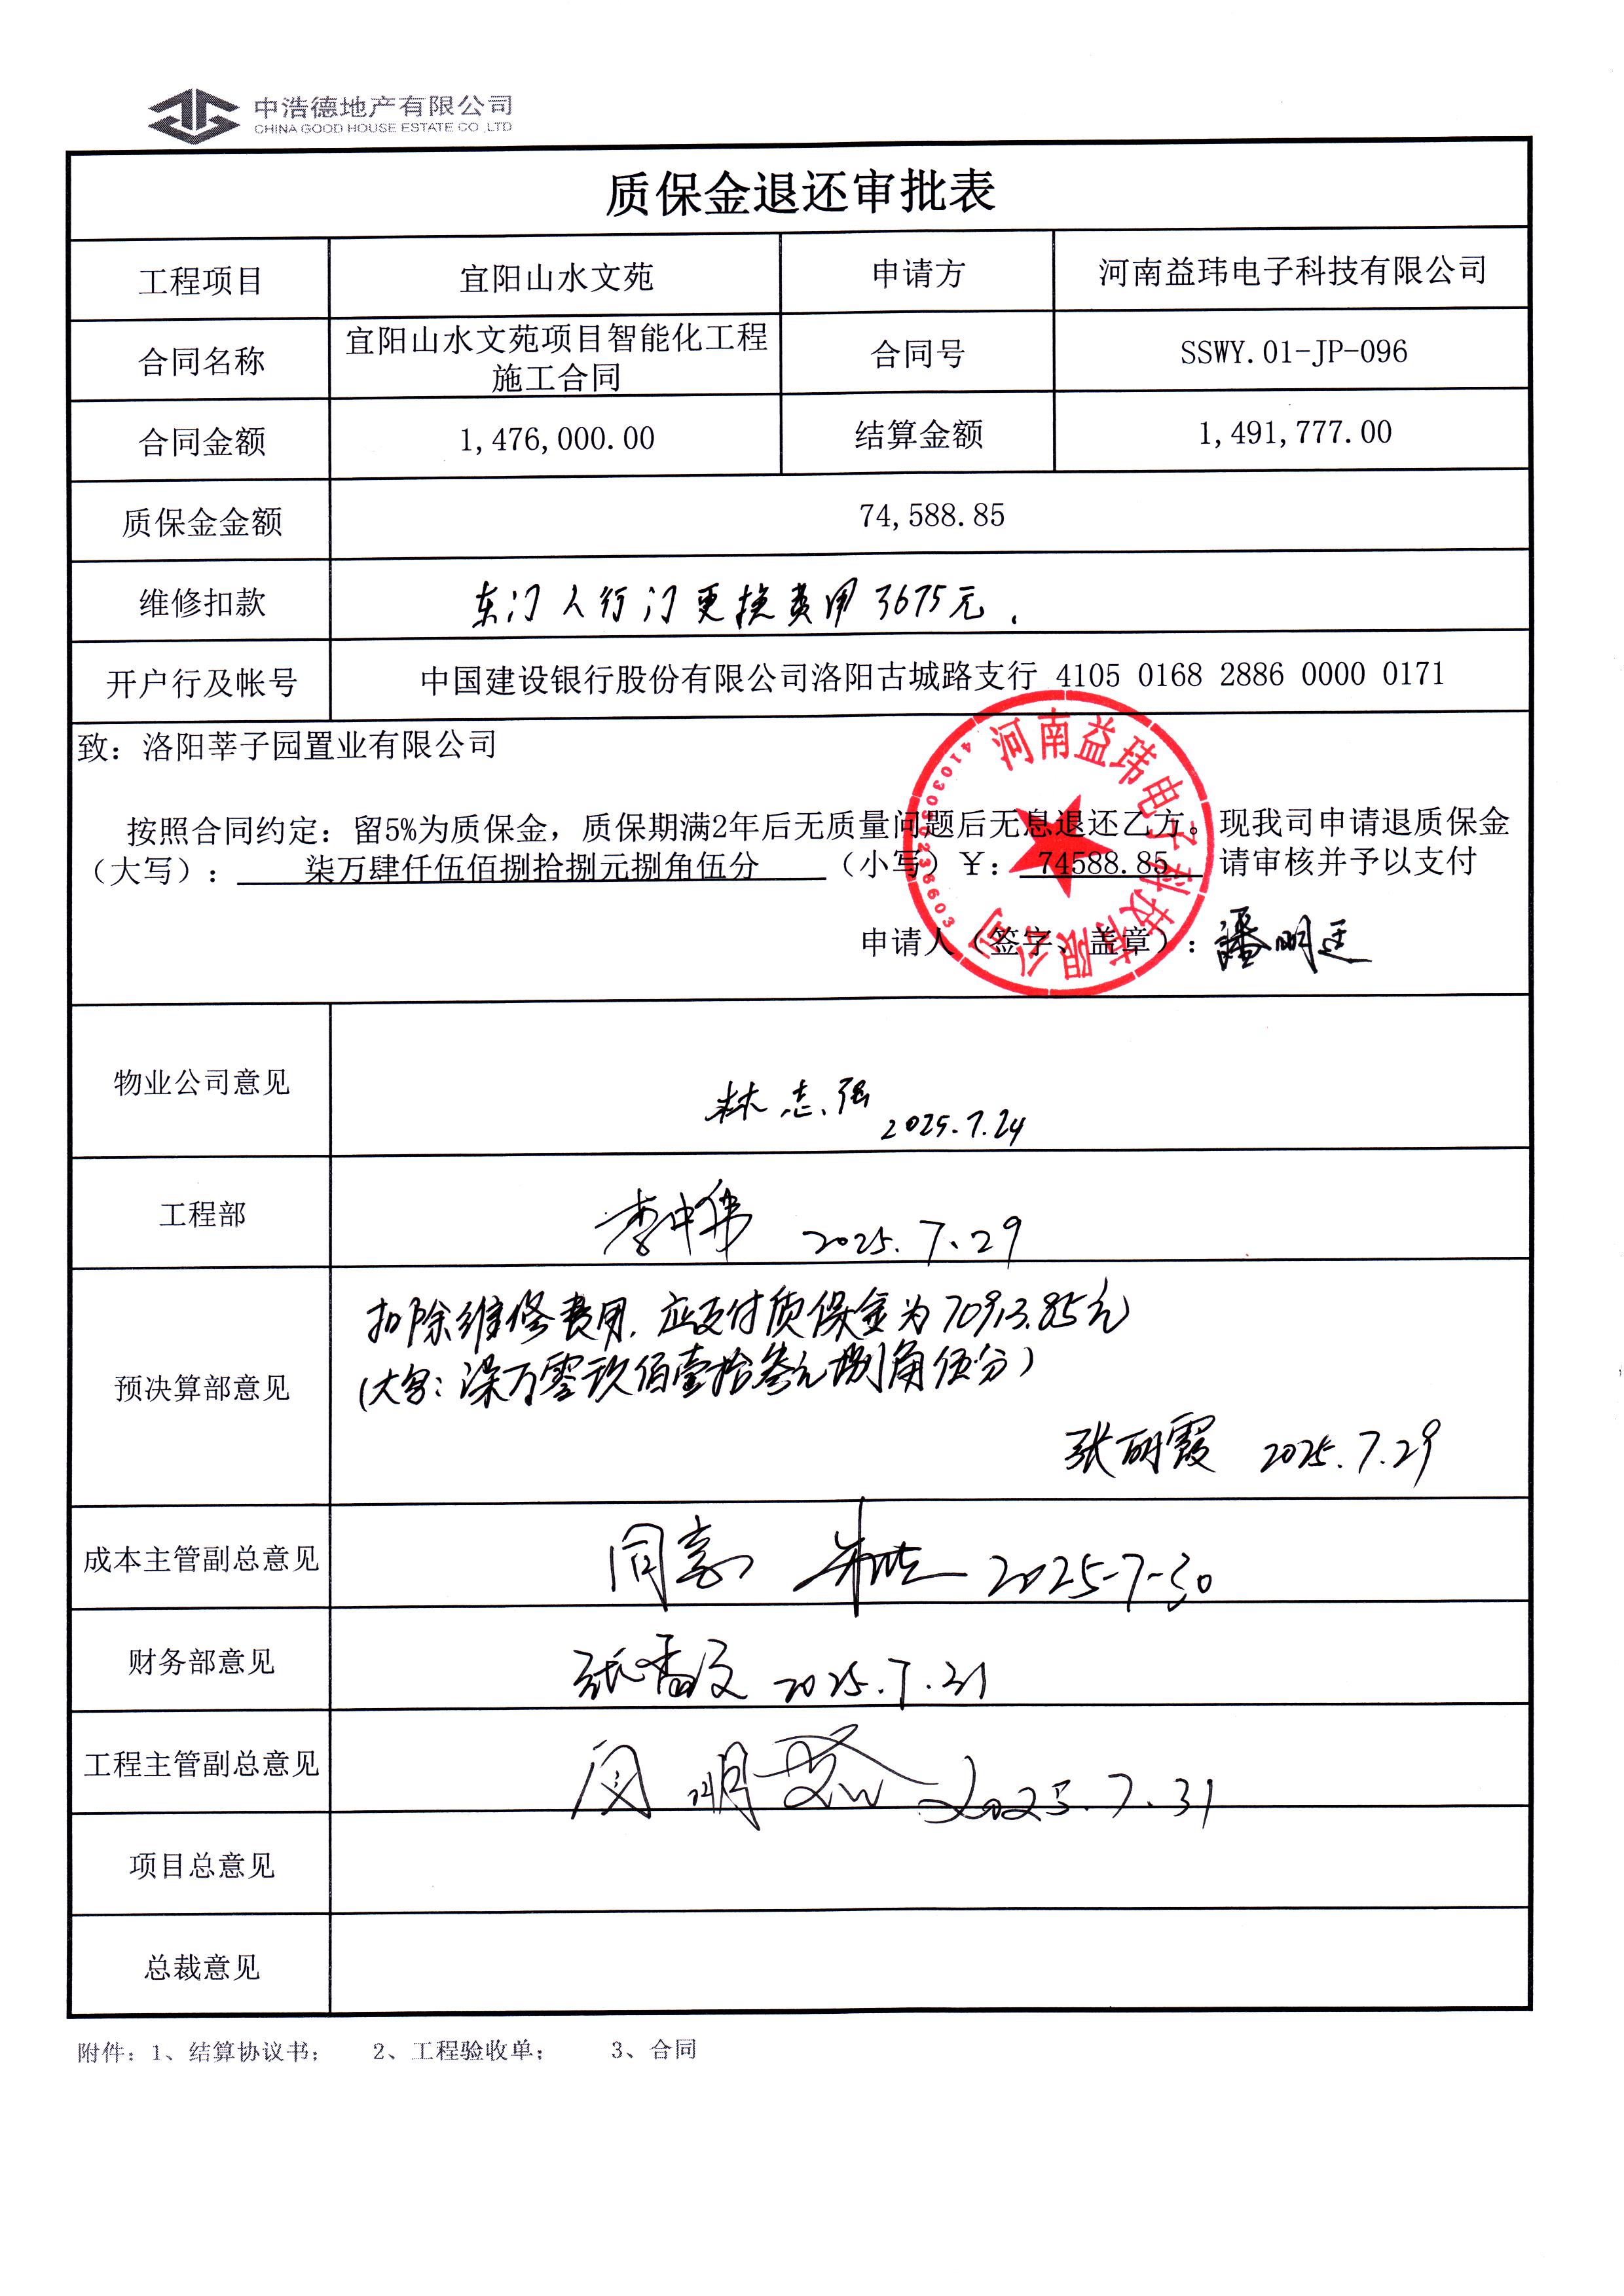 中浩德地产有限公司
CHINA GOOD HOUSE ESTATE CO.,LTD
质保金退还审批表
工程项目 宜阳山水文苑 申请方 河南益玮电子科技有限公司
合同名称 宜阳山水文苑项目智能化工程施工合同 合同号 SSWY.01-JP-096
合同金额 1,476,000.00 结算金额 1,491,777.00
质保金金额 74,588.85
维修扣款 东门人行门更换费用3675元.
开户行及帐号 中国建设银行股份有限公司洛阳古城路支行 4105 0168 2886 0000 0171
致：洛阳莘子园置业有限公司
按照合同约定：留5%为质保金，质保期满2年后无质量问题后无息退还乙方。现我司申请退质保金
（大写）： 柒万肆仟伍佰捌拾捌元捌角伍分 （小写）￥： 74588.85 请审核并予以支付
申请人（签字、盖章）：潘明廷
河南益玮电子科技有限公司
物业公司意见 林志强
2025.7.24
工程部 李中伟 2025.7.29
预决算部意见 扣除维修费用,应支付质保金为70913.85元
(大写：柒万零玖佰壹拾叁元捌角伍分)
张丽霞 2025.7.29
成本主管副总意见 同意 2025-7-30
财务部意见 2025.7.31
工程主管副总意见 2025.7.31
项目总意见
总裁意见
附件：1、结算协议书； 2、工程验收单； 3、合同